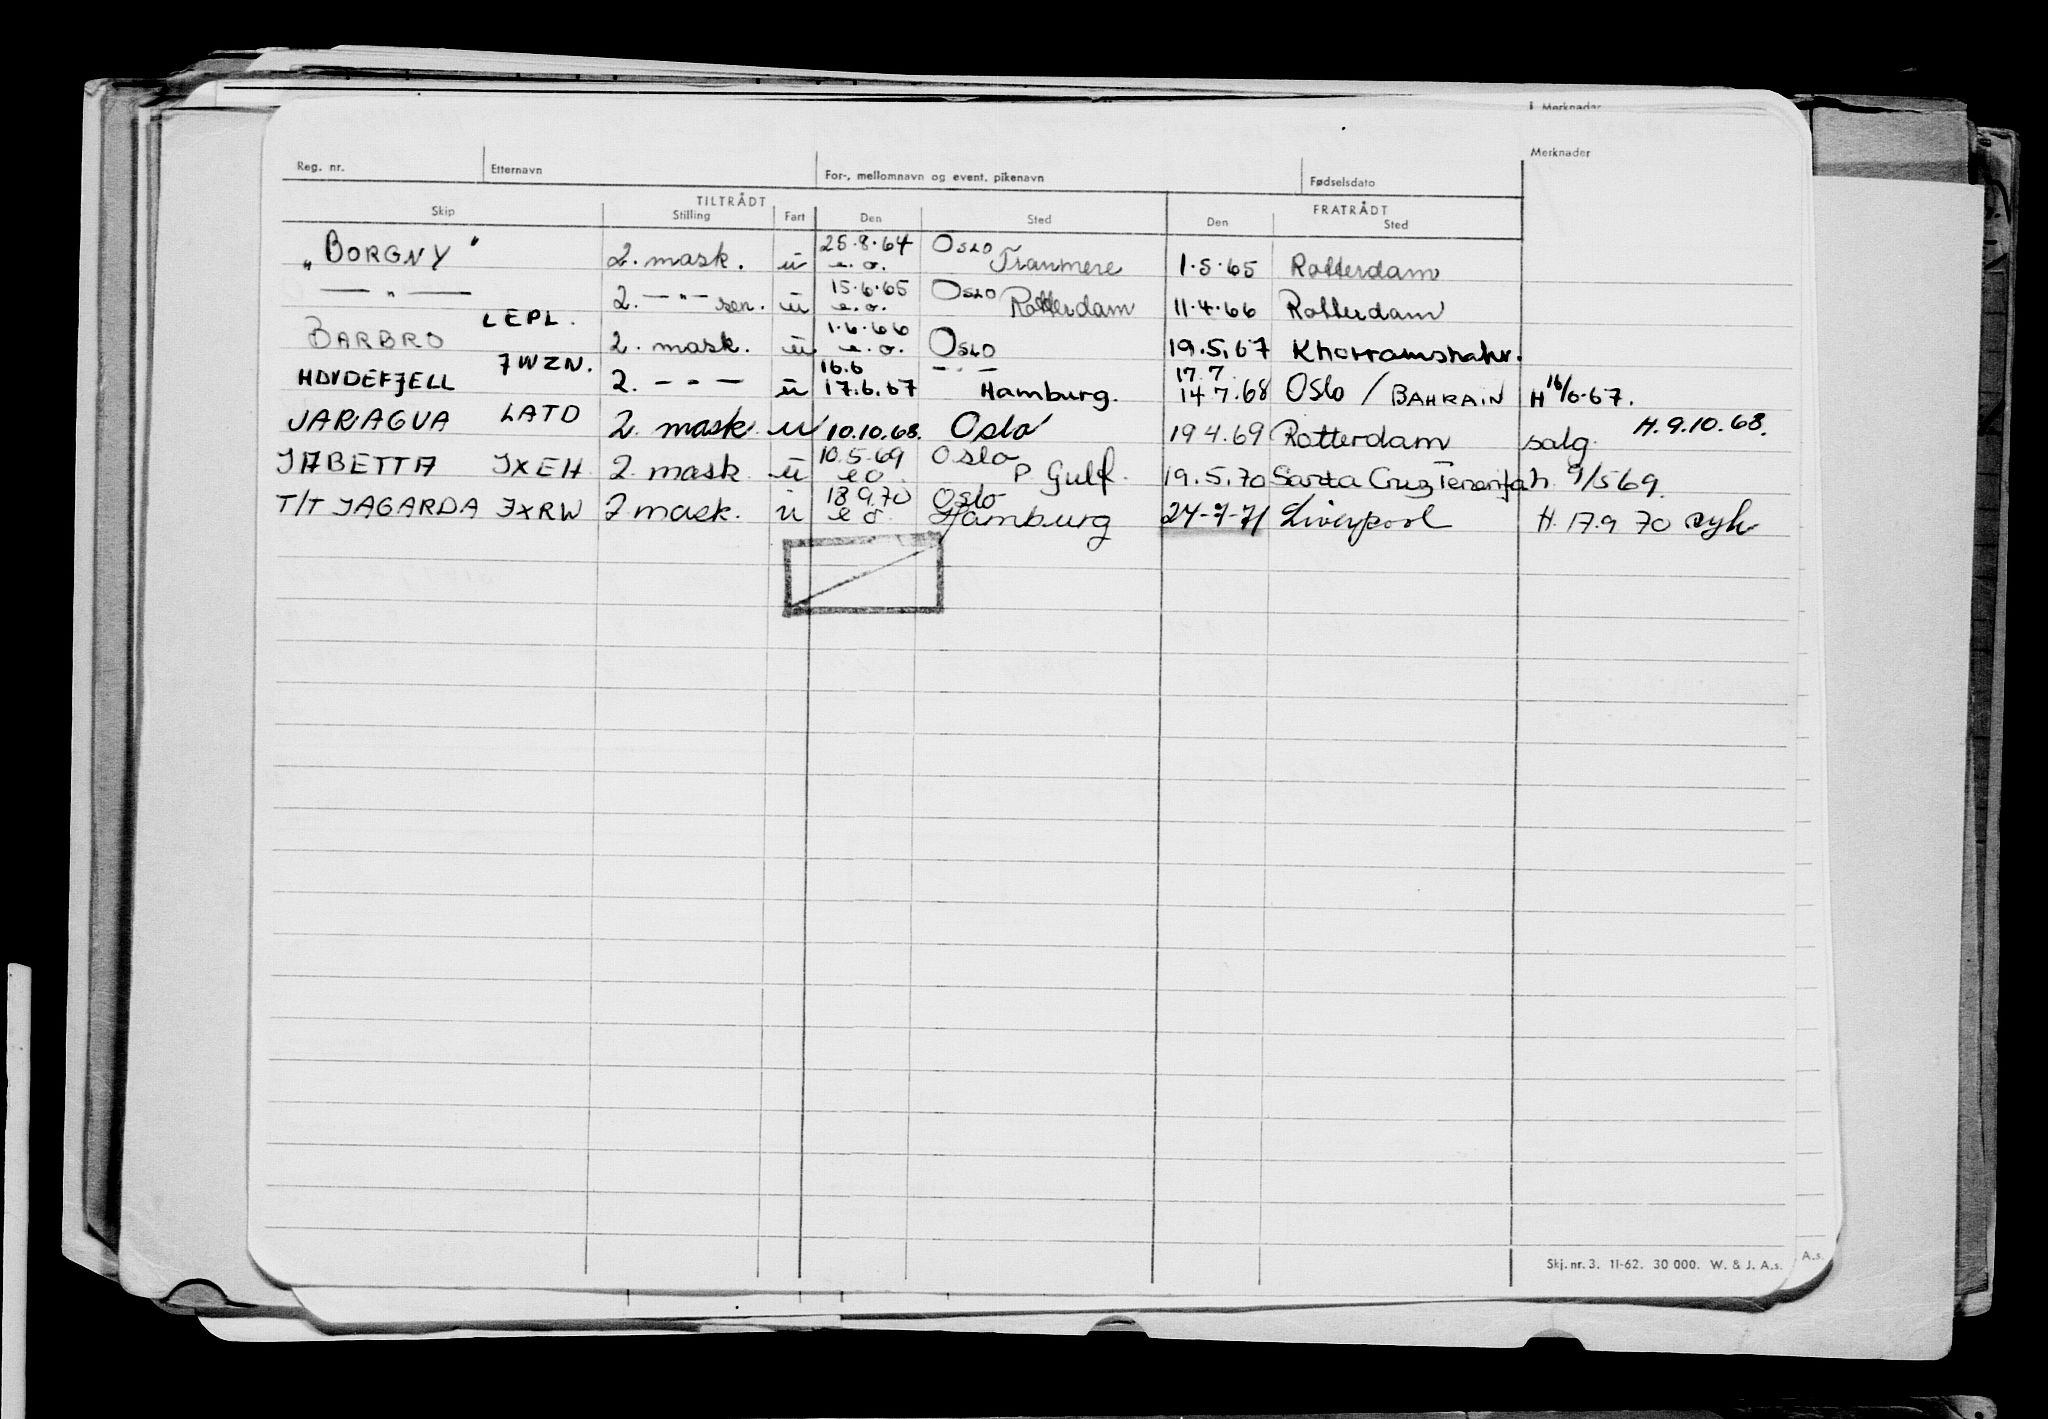 Merknader
Reg. nr. Etternavn For-, mellomnavn og event. pikenavn Fødselsdato Merknader
TILTRÅDT FRATRÅDT
Skip Stilling Fart Den Sted Den Sted
„BORGNY" 2. mask. ü 25.8.64 e.o. OSLO Tranmere 1.5.65 Rotterdam
— " — 2. — " — sen. ü 15.6.65 e.o. OSLO Rotterdam 11.4.66 Rotterdam
BARBRO LEPL. 2. mask. ü 1.6.66 e.o. OSLO 19.5.67 Khorramshahr.
HOVDEFJELL JWZN. 2. — " — ü 16.6 17.6.67 — " — Hamburg. 17.7. 14 7.68 Oslo / BAHRAIN H 16/6.67.
JARAGUA LATD 2. mask u 10.10.68. Oslo 19 4.69 Rotterdam salg. H.9.10.68.
JABETTA JXEH 2. mask ü 10.5.69 e o. Oslo P Gulf. 19.5.70 Santa Cruz Teneriffa h. 9/5 69.
T/T JAGARDA JXRW 2 mask. ü 18 9.70 e o. Oslo Hamburg 24-7-71 Liverpool H. 17.9 70 syk
Skj. nr. 3. 11-62. 30 000. W. & J. A.s. A.s.